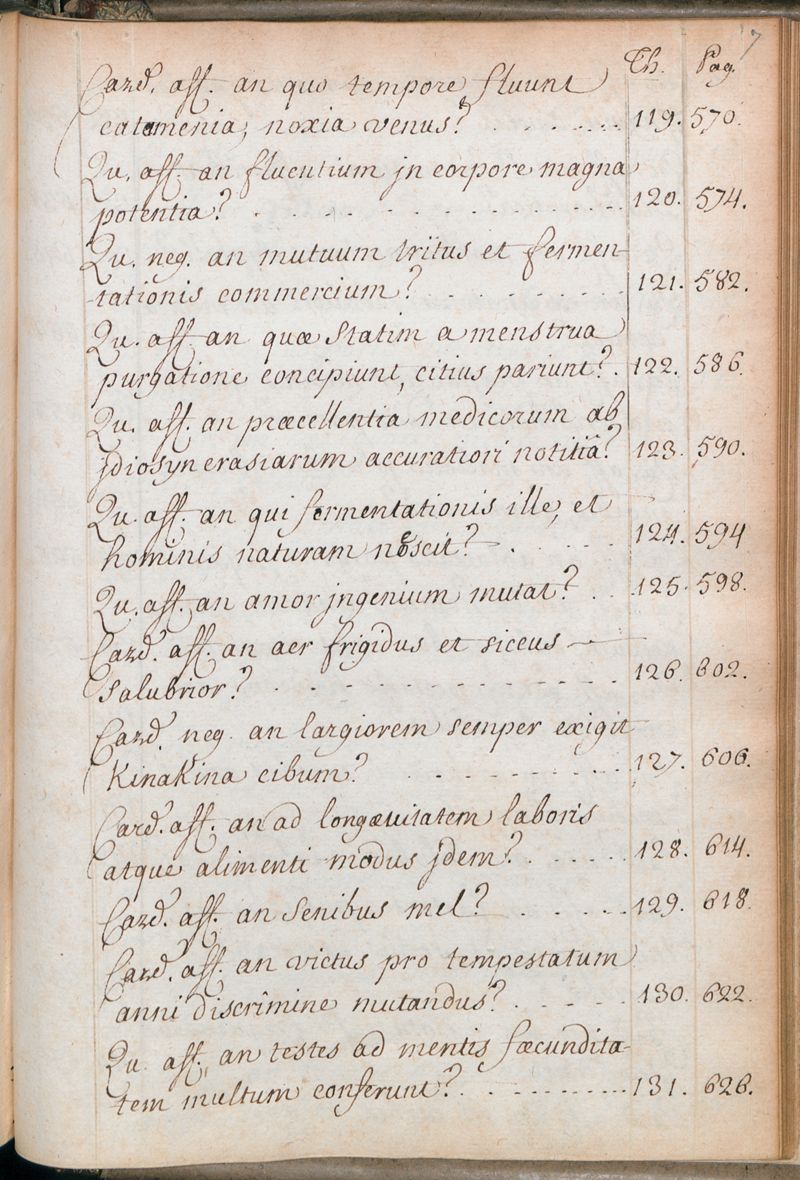 7
Th. Pag.
Card. aff. an quo tempore fluunt
catamenia, noxia venus? . . . . . . . 119. 570.
Qu. aff. an fluentium jn corpore magna
potentia? . . . . . . . . . . . . . 120. 574.
Qu. neg. an mutuum tritus et fermen-
-tationis commercium? . . . . . . . . 121. 582.
Qu. aff. an quæ statim a menstrua
purgatione concipiunt, citius pariunt? . 122. 586.
Qu. aff. an præcellentia medicorum ab
jdiosyncrasiarum accuratiori notitiâ? 123. 590.
Qu. aff. an qui fermentationis ille, et
hominis naturam noscit? . . . . . 124. 594
Qu. aff. an amor jngenium mutat? . . 125. 598.
Card. aff. an aer frigidus et siccus
salubrior? . . . . . . . . . . . . 126. 602.
Card. neg. an largiorem semper exigit
KinaKina cibum? . . . . . . . . 127. 606.
Card. aff. an ad longævitatem laboris
atque alimenti modus jdem? . . . . . . 128. 614.
Card. aff. an senibus mel? . . . . . 129. 618.
Card. aff. an victus pro tempestatum
anni discrimine mutandus? . . . . . 130. 622.
Qu. aff. an testes ad mentis fæcundita-
tem multum conferunt? . . . . . . . . . . 131. 626.